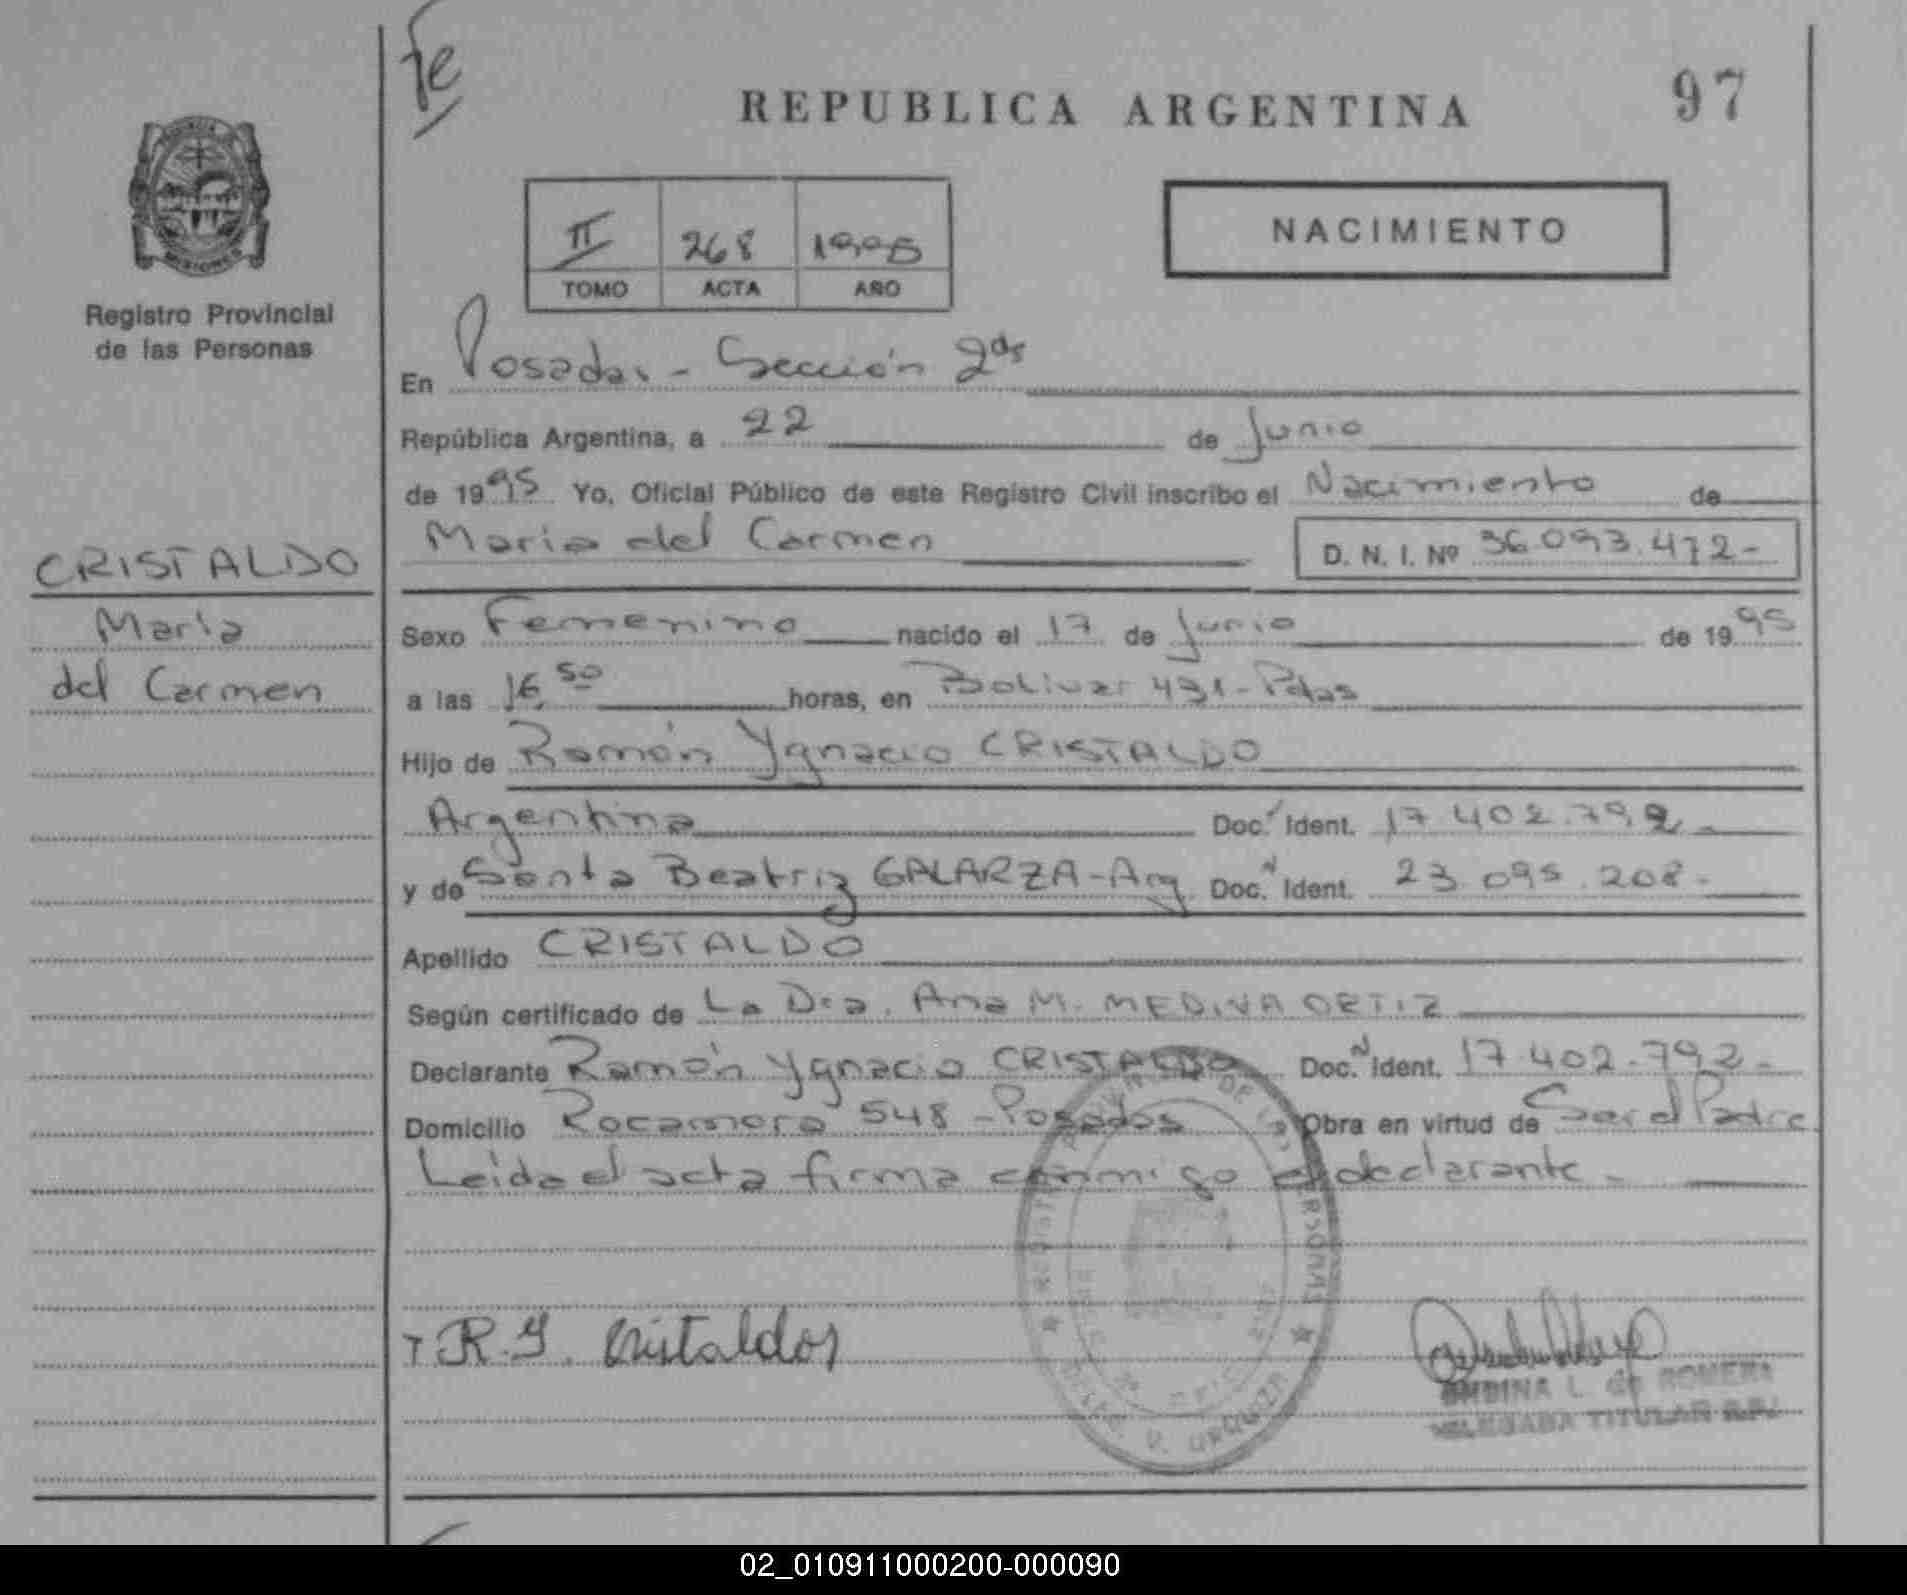 fe
REPUBLICA ARGENTINA
97
II 268 1995
TOMO ACTA AÑO
NACIMIENTO
MISIONES
Registro Provincial
de las Personas
En Posadas - Sección 2da
República Argentina, a 22 de Junio
de 1995 Yo, Oficial Público de este Registro Civil inscribo el Nacimiento de
María del Carmen D. N. I. Nº 36.093.472-
CRISTALDO
María
del Carmen
Sexo Femenino nacido el 17 de Junio de 1995
a las 16,50 horas, en Bolivar 431 - Pdas
Hijo de Ramón Ygnacio CRISTALDO
Argentina Doc. Ident. 17.402.792-
y de Santa Beatriz GALARZA - Arg. Doc. Ident. 23.095.208-
Apellido CRISTALDO
Según certificado de La Dra. Ana M. MEDINA ORTIZ
Declarante Ramón Ygnacio CRISTALDO Doc. Ident. 17.402.792-
Domicilio Rocamora 548 - Posadas Obra en virtud de Ser el Padre
Leida el acta firma conmigo el declarante -
R.Y. Cristaldo
L. de ROMERO
DELEGADA TITULAR R.P.
DE LAS PERSONAS
URQUIZA
02_010911000200-000090